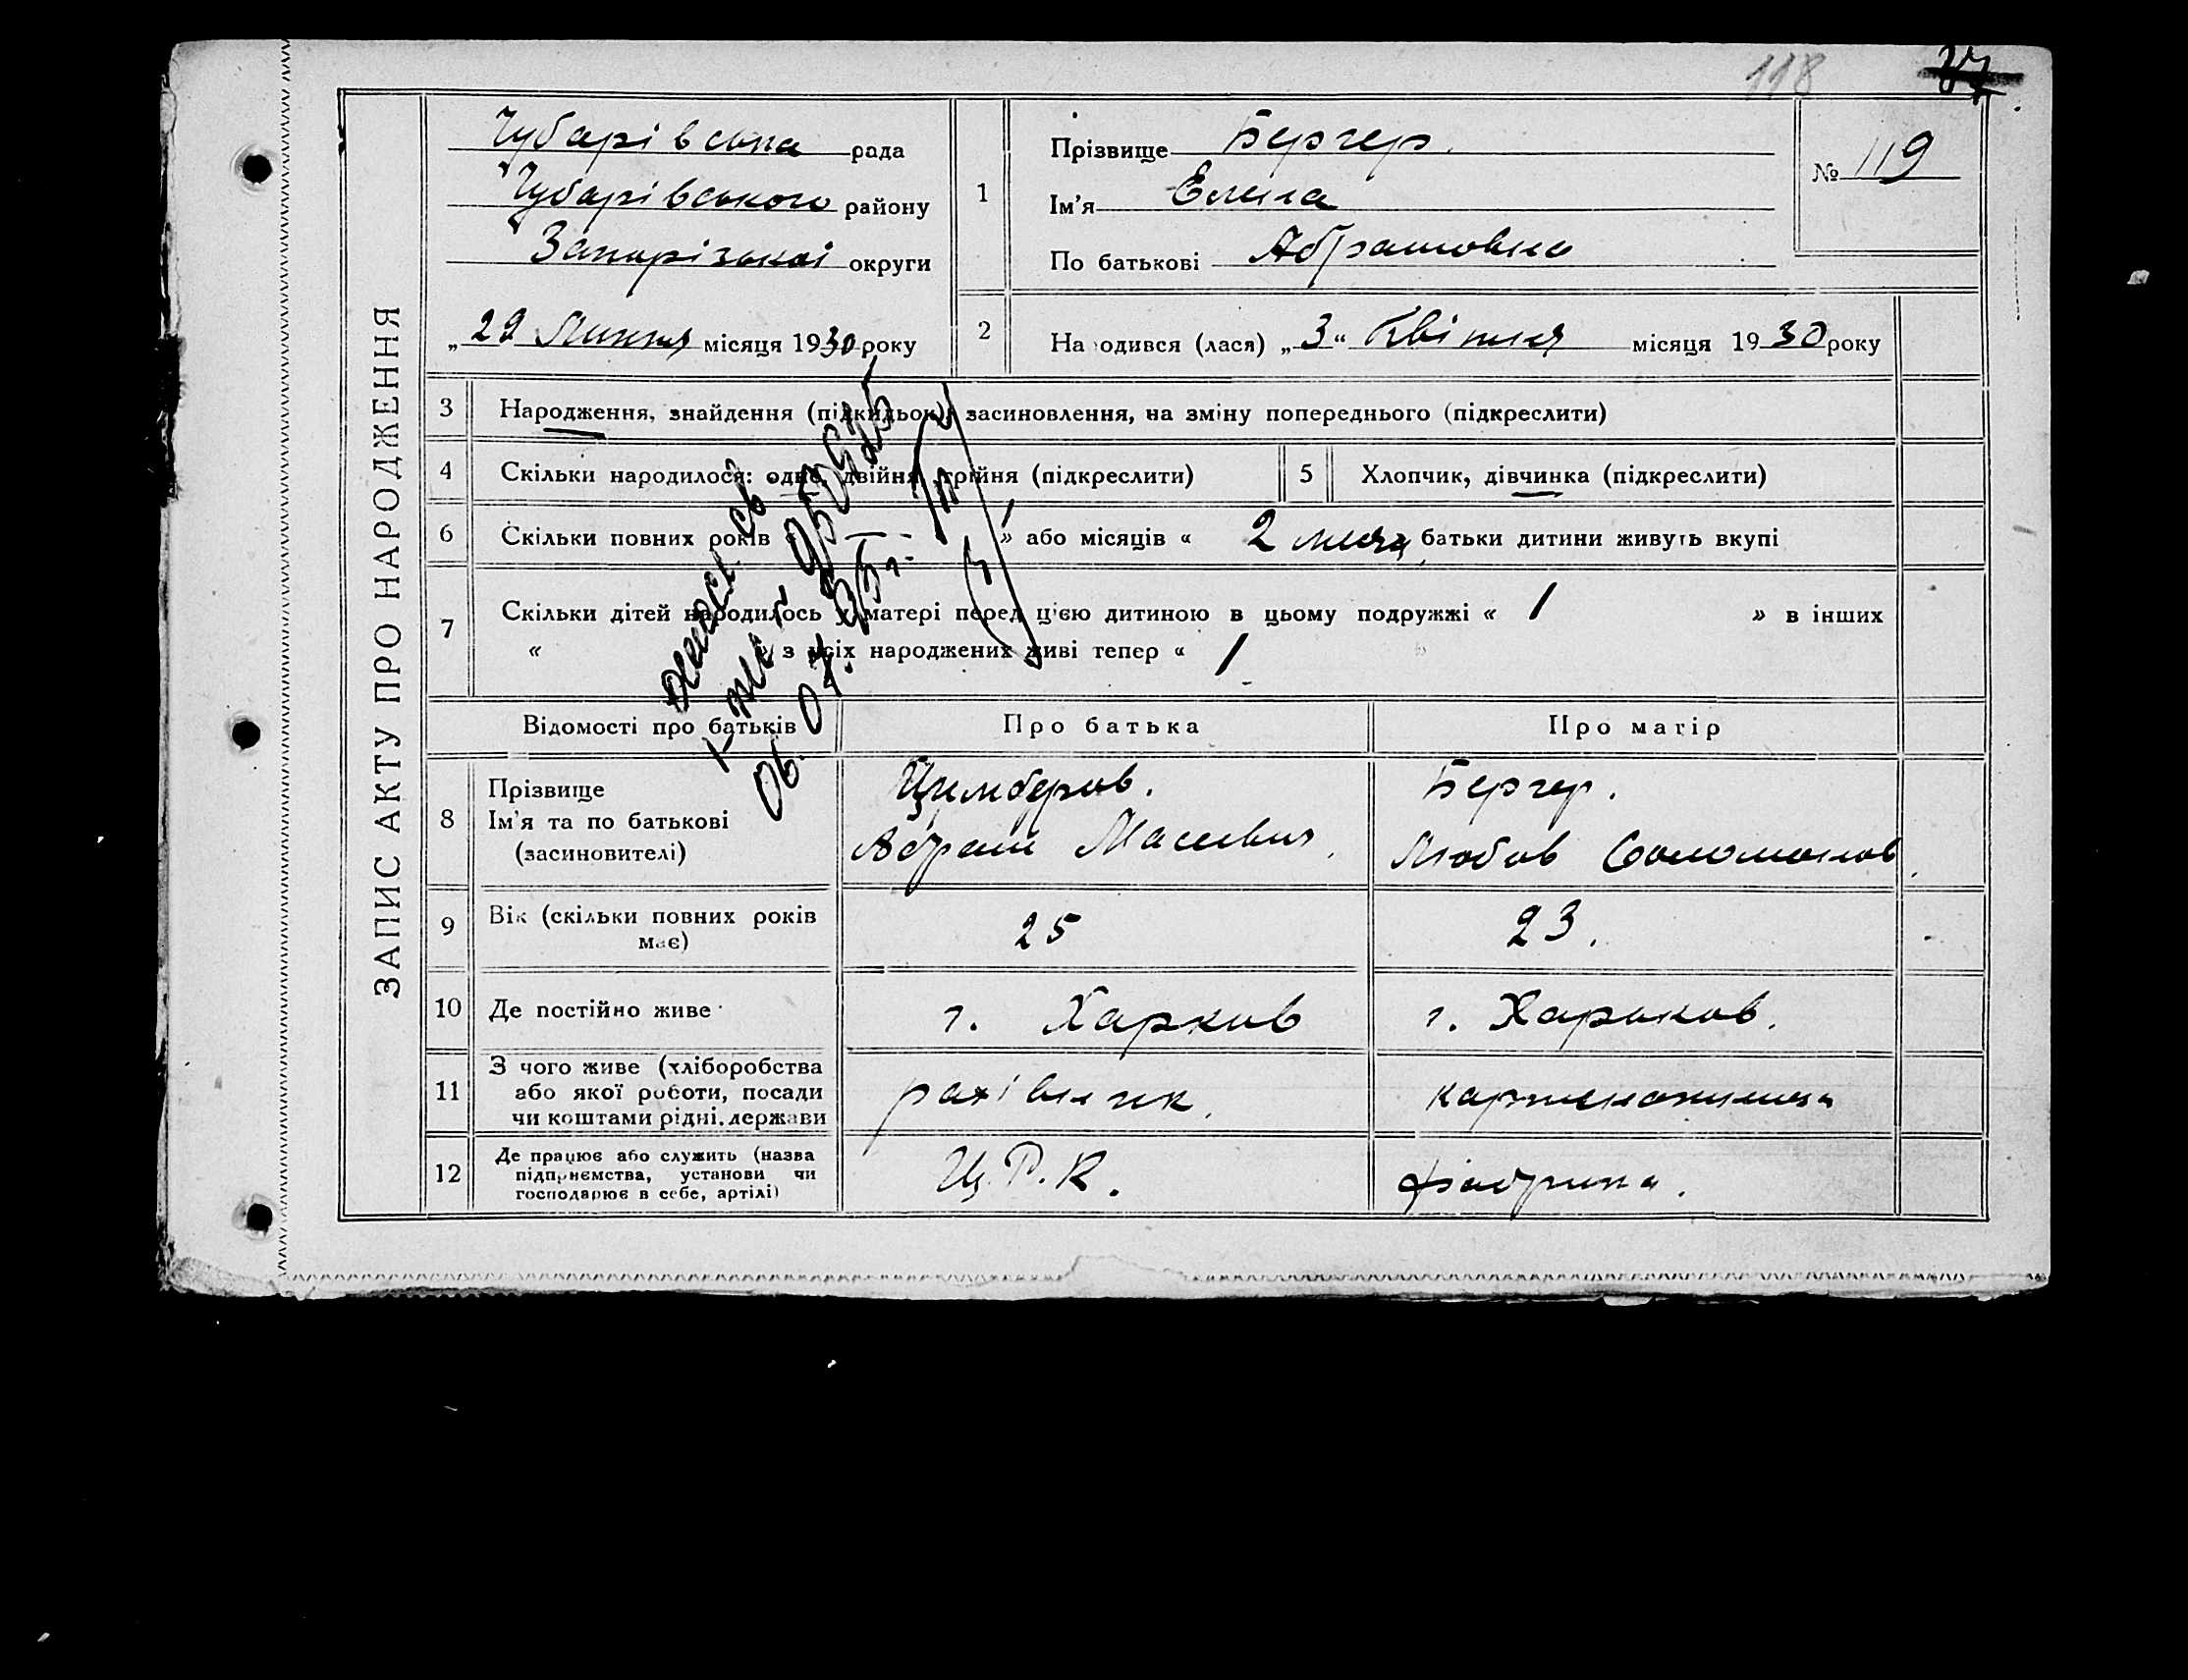 118
ЗАПИС АКТУ ПРО НАРОДЖЕННЯ
Чубарівська рада
Чубарівського району
Запорізької округи
„29 Липня місяця 1930 року
1 Прізвище Бергер.
Ім'я Елина
По батькові Абрамовна
№ 119
2 На одився (лася) „3“ Квітня місяця 1930 року
3 Народження, знайдення (підкидьок), засиновлення, на зміну попереднього (підкреслити)
4 Скільки народилося: одно, двійня, трійня (підкреслити)
5 Хлопчик, дівчинка (підкреслити)
6 Скільки повних років « — » або місяців « 2 батьки дитини живуть вкупі
7 Скільки дітей народилось у матері перед цією дитиною в цьому подружжі « 1 » в інших
« » з усіх народжених живі тепер « 1 »
Відомості про батьків Про батька Про матір
8 Прізвище
Ім'я та по батькові
(засиновителі)
Цимберов.
Абрам
Бергер.
Любов Соломонов
9 Вік (скільки повних років
має)
25
23.
10 Де постійно живе
г. Харков
г. Харьков.
11 З чого живе (хліборобства
або якої роботи, посади
чи коштами рідні, держави
рахівник.
картонажниця
12 Де працює або служить (назва
підприємства, установи чи
господарює в себе, артілі)
Ц.Р.К.
Фабрика.